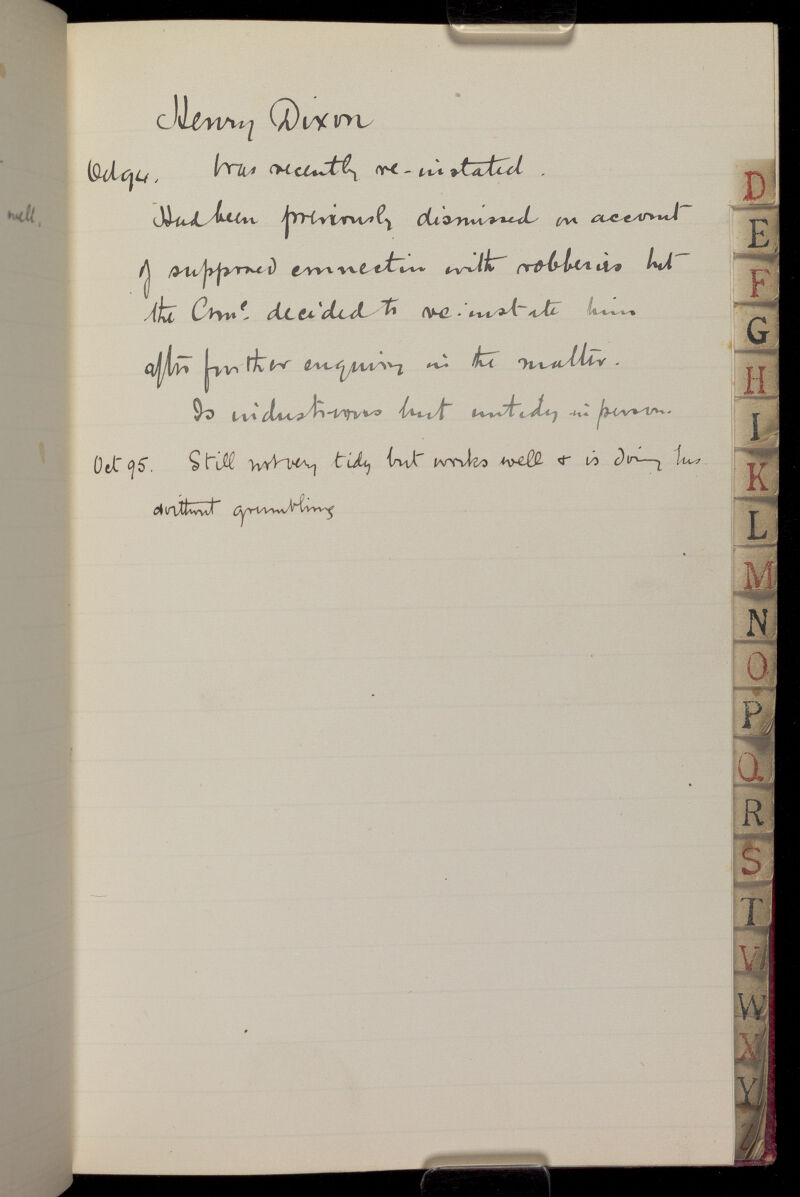 Henry Dixon
Oct 94. Was recently re-instated.
Had been previously dismissed on account
of supposed connection with robberies but
the Comee. decided to re-instate him
after further enquiry in the matter.
Is industrious but untidy in person.
Oct 95. Still not very tidy but works well & is doing his
without grumbling
well.
D
E
F
G
H
I
K
L
M
N
O
P
Q
R
S
T
V
W
X
Y